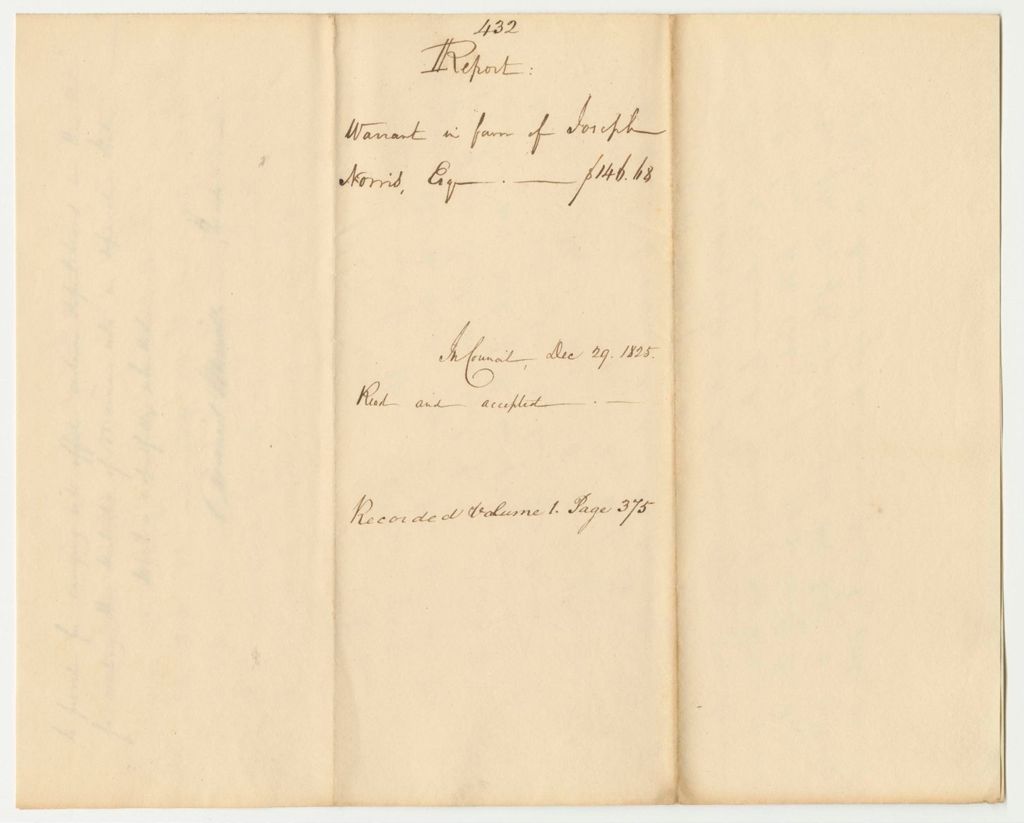 432
Report:
Warrant in favor of Joseph
Norris, Esq — . — $146.68
In Council, Dec 29. 1825.
Read and accepted — . —
Recorded Volume 1. Page 375